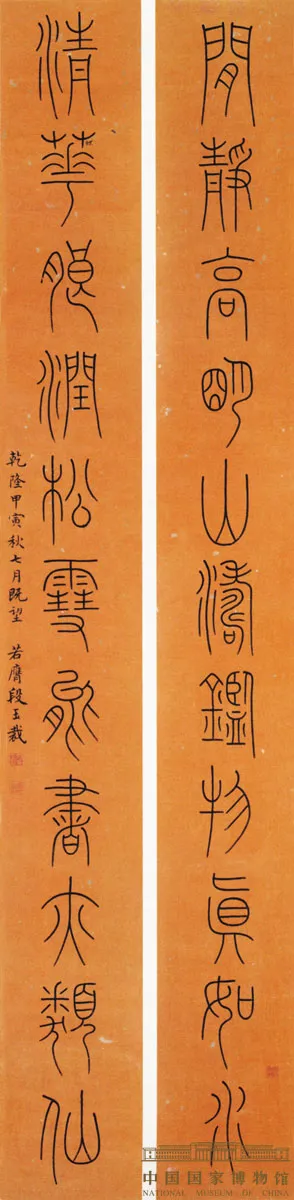 閒靜高明山濤鑑物真如水
清華朗潤松雪能書亦類仙
乾隆甲寅秋七月既望 若膺段玉裁
中国国家博物馆
NATIONAL MUSEUM OF CHINA